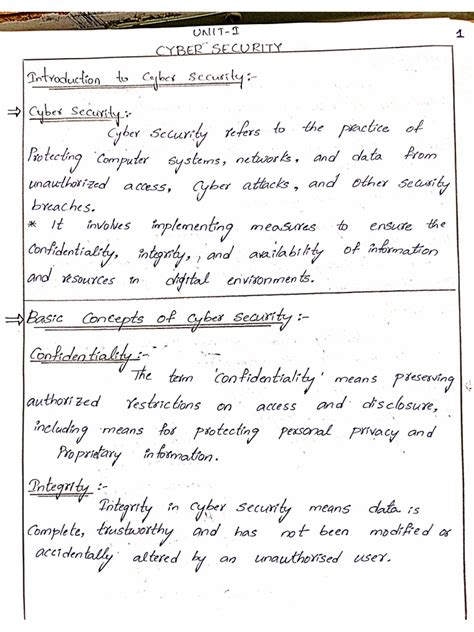 UNIT-I
1
CYBER SECURITY
Introduction to Cyber Security:-
⇒ Cyber Security:-
Cyber Security refers to the practice of
Protecting Computer systems, networks, and data from
unauthorized access, Cyber attacks, and other security
breaches.
* It involves implementing measures to ensure the
Confidentiality, integrity, and availability of information
and resources in digital environments.
⇒ Basic Concepts of Cyber Security:-
Confidentiality:-
The term 'confidentiality' means preserving
authorized restrictions on access and disclosure,
including means for protecting personal privacy and
Proprietary information.
Integrity:-
Integrity in cyber security means data is
Complete, trustworthy and has not been modified or
accidentally altered by an unauthorised user.